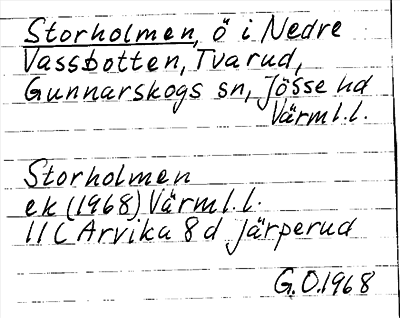 Storholmen, ö i Nedre
Vassbotten, Tvarud,
Gunnarskogs sn, Jösse hd
Värml.l.
Storholmen
ek (1968) Värml.l.
11C Arvika 8d Järperud
G.O.1968